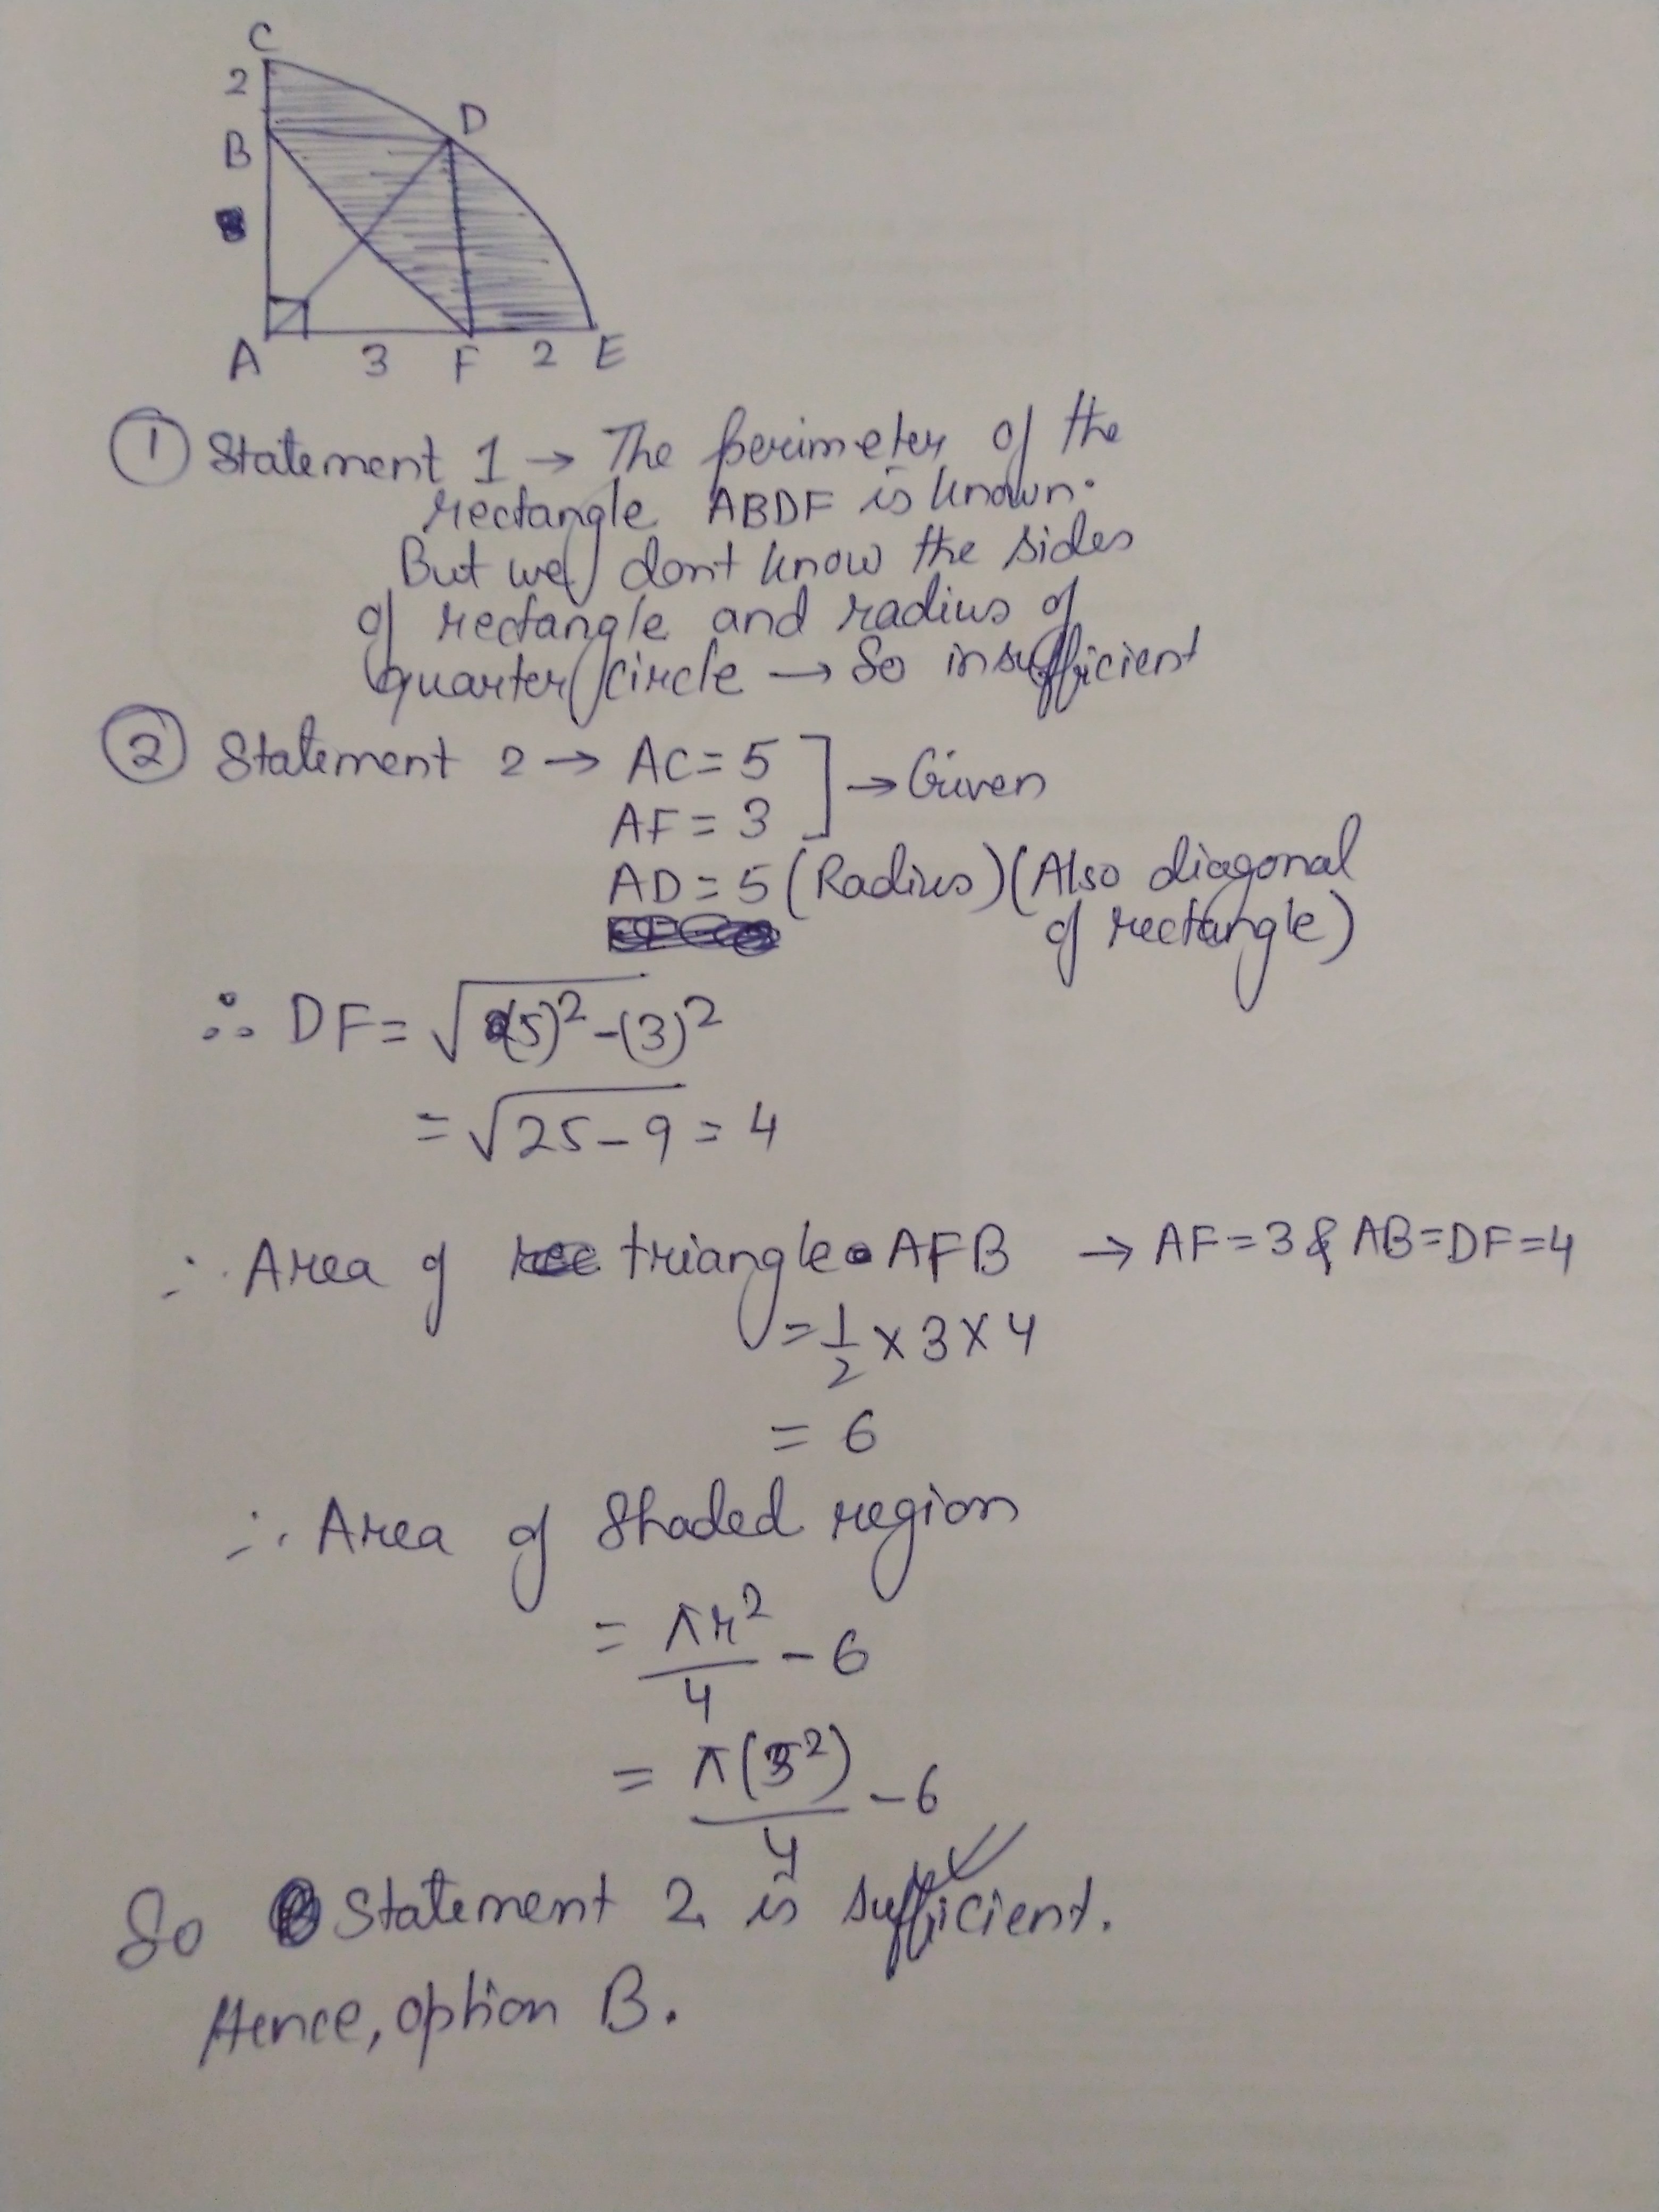 C
2
D
B
A 3 F 2 E
① Statement 1 → The perimeter of the
rectangle ABDF is known.
But we don't know the sides
of rectangle and radius of
quarter circle → So insufficient
② Statement 2 → AC = 5 ] → Given
AF = 3
AD = 5 (Radius) (Also diagonal
of rectangle)
∴ DF = √(5)² - (3)²
= √25 - 9 = 4
∴ Area of triangle AFB → AF = 3 & AB = DF = 4
= 1/2 × 3 × 4
= 6
∴ Area of Shaded region
= πr²/4 - 6
= π(5²)/4 - 6
So Statement 2 is sufficient. ✓
Hence, option B.